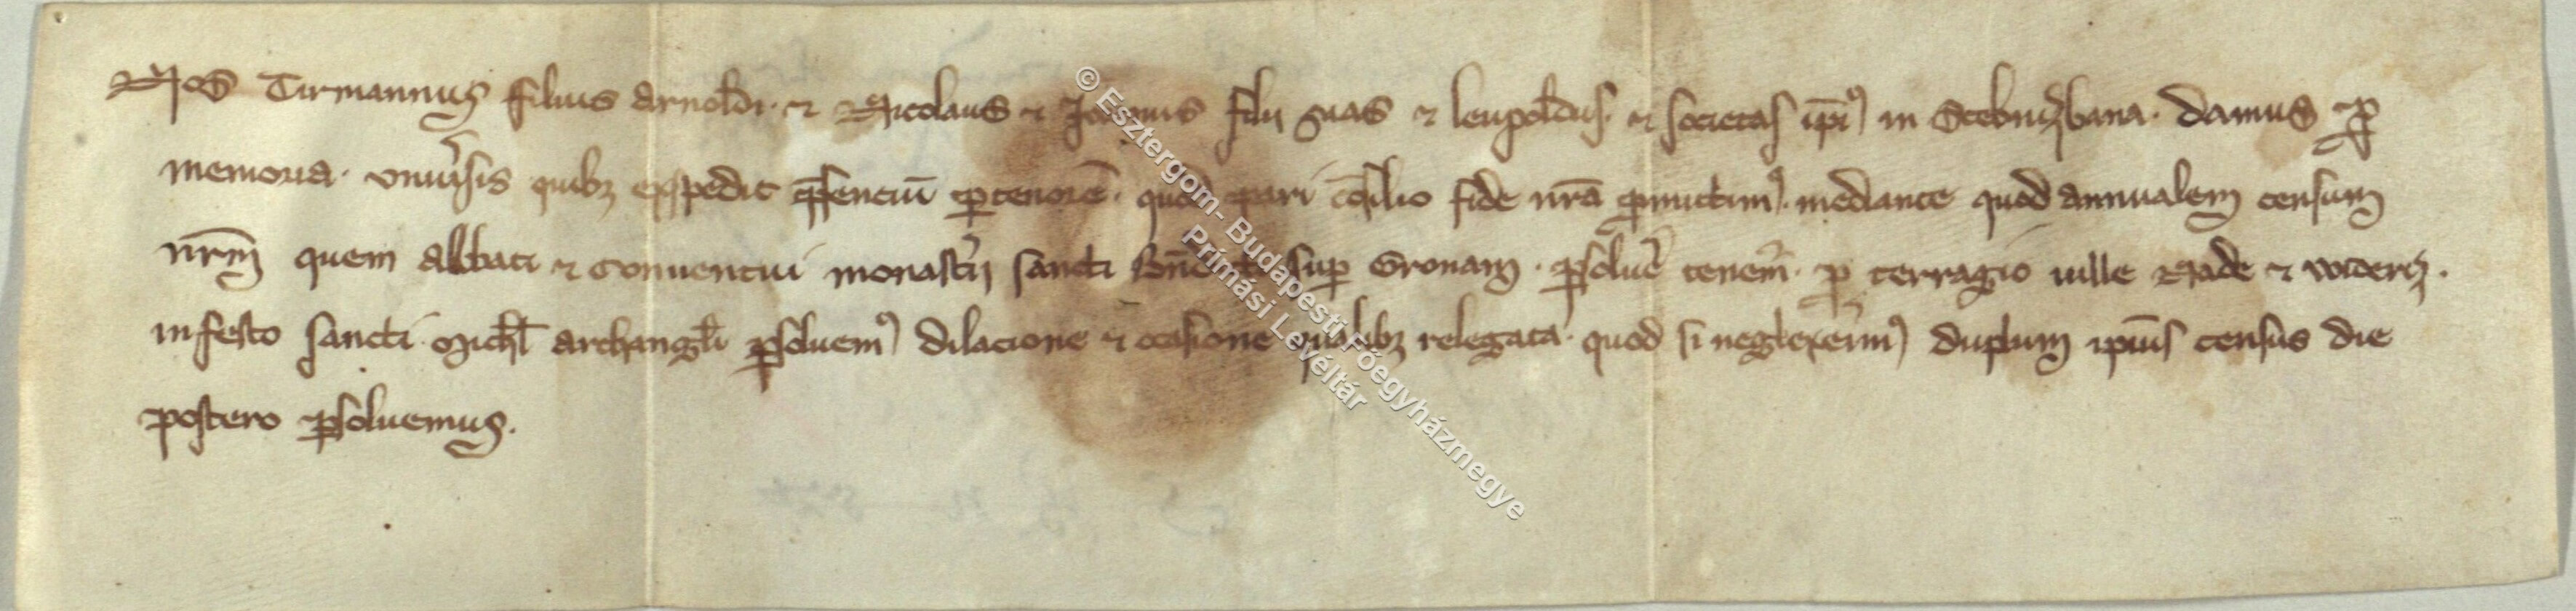 Nos Tirmannus filius arnoldi · et Nicolaus et Jacobus filii suas et leupoldus · et societas ip̄iꝰ in Scebnizbana · damus ꝓ
memoria · vniuersis quibꝫ expedit p̄senciū ꝑ tenorē · quod pari cōsilio fide nr̄a ꝓmittimꝰ · mediante quod annualem censum
nr̄m quem abbati et Conuentui monastˀii sancti Bn̄edicti suꝑ Gronam · ꝑsoluē̓ tenemˀ · ꝓ terragio uille
in festo sancti Mich̄l archangeli ꝑsoluemꝰ dilacione et occasione qualibꝫ relegata · quod si neglexerimꝰ duplum ip̄ius census die
postero ꝑsoluemus ·
© Esztergom-Budapesti Főegyházmegye
Prímási Levéltár